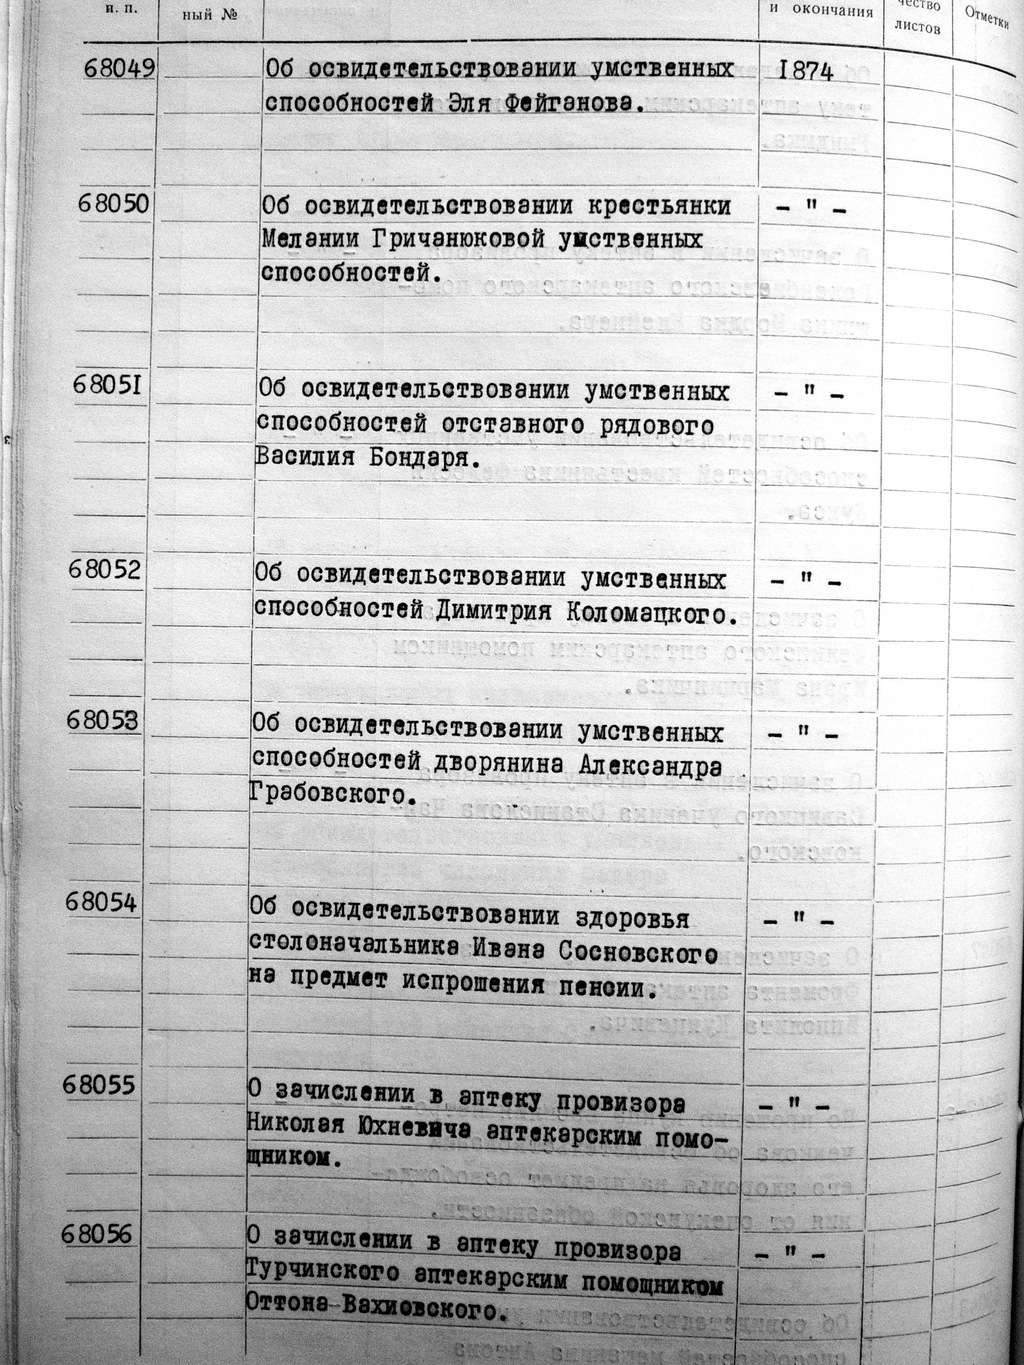 н. п.
ный №
и окончания
чество
листов
Отметки
68049 Об освидетельствовании умственных 1874
способностей Эля Фейганова.
68050 Об освидетельствовании крестьянки – " –
Мелании Гричанюковой умственных
способностей.
68051 Об освидетельствовании умственных – " –
способностей отставного рядового
Василия Бондаря.
68052 Об освидетельствовании умственных – " –
способностей Димитрия Коломацкого.
68053 Об освидетельствовании умственных – " –
способностей дворянина Александра
Грабовского.
68054 Об освидетельствовании здоровья – " –
столоначальника Ивана Сосновского
на предмет испрошения пенсии.
68055 О зачислении в аптеку провизора – " –
Николая Юхневича аптекарским помо-
щником.
68056 О зачислении в аптеку провизора – " –
Турчинского аптекарским помощником
Оттона Вахиовского.